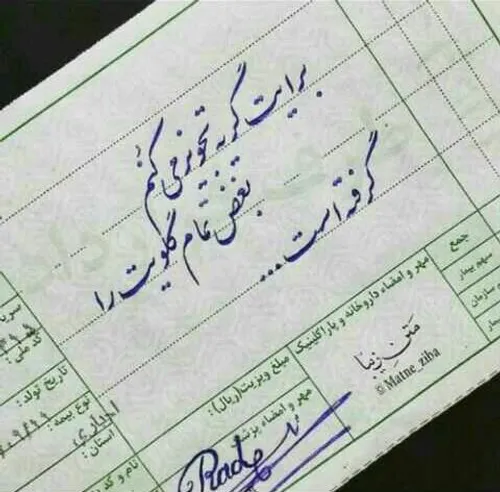 برایت گریه تجویز می کنم
بغض تمام گلویت را
گرفته است...
جمع
سهم بیمار
سازمان
مهر و امضاء داروخانه و پاراکلینیک
متن زیبا
© Matne_ziba
مبلغ ویزیت(ریال):
مهر و امضاء پزشک
کد ملی:
تاریخ تولد:
نوع بیمه:
استان:
نام و